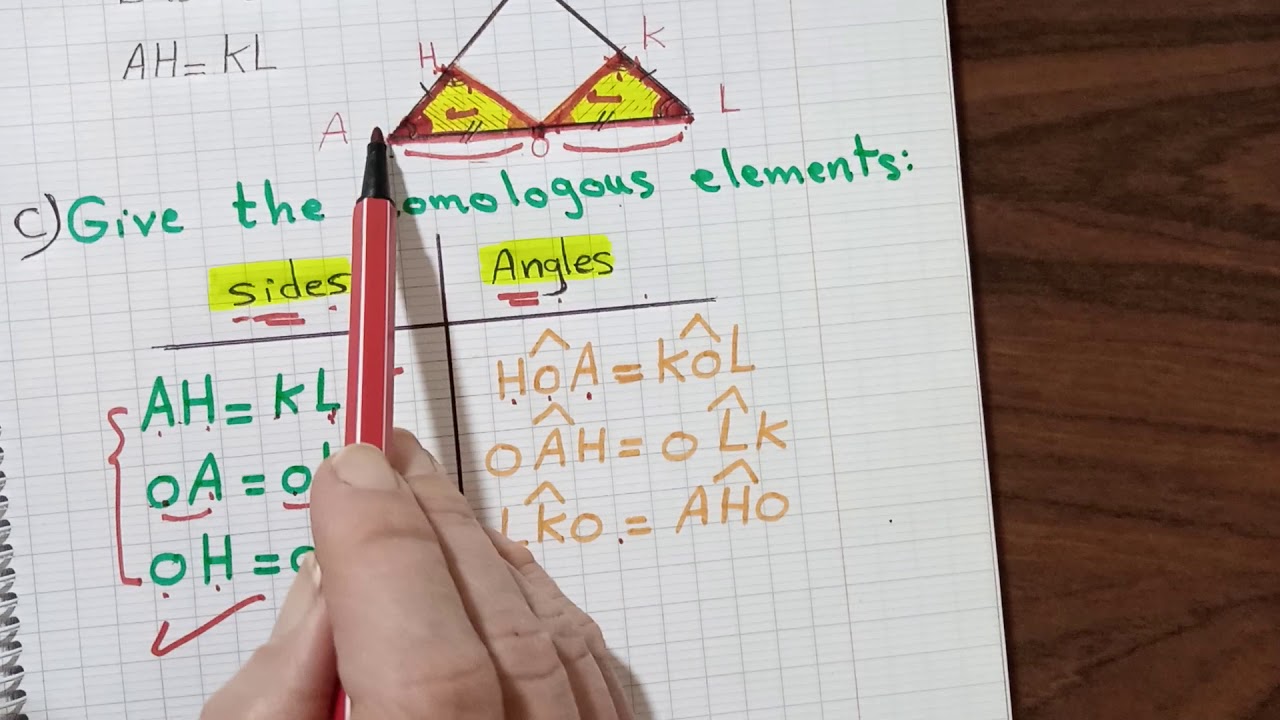 AH = KL
H K
A O L
c) Give the homologous elements:
sides Angles
AH = KL HÔA = KÔL
OA = OÂH = OL̂K
OH = LK̂O = AĤO